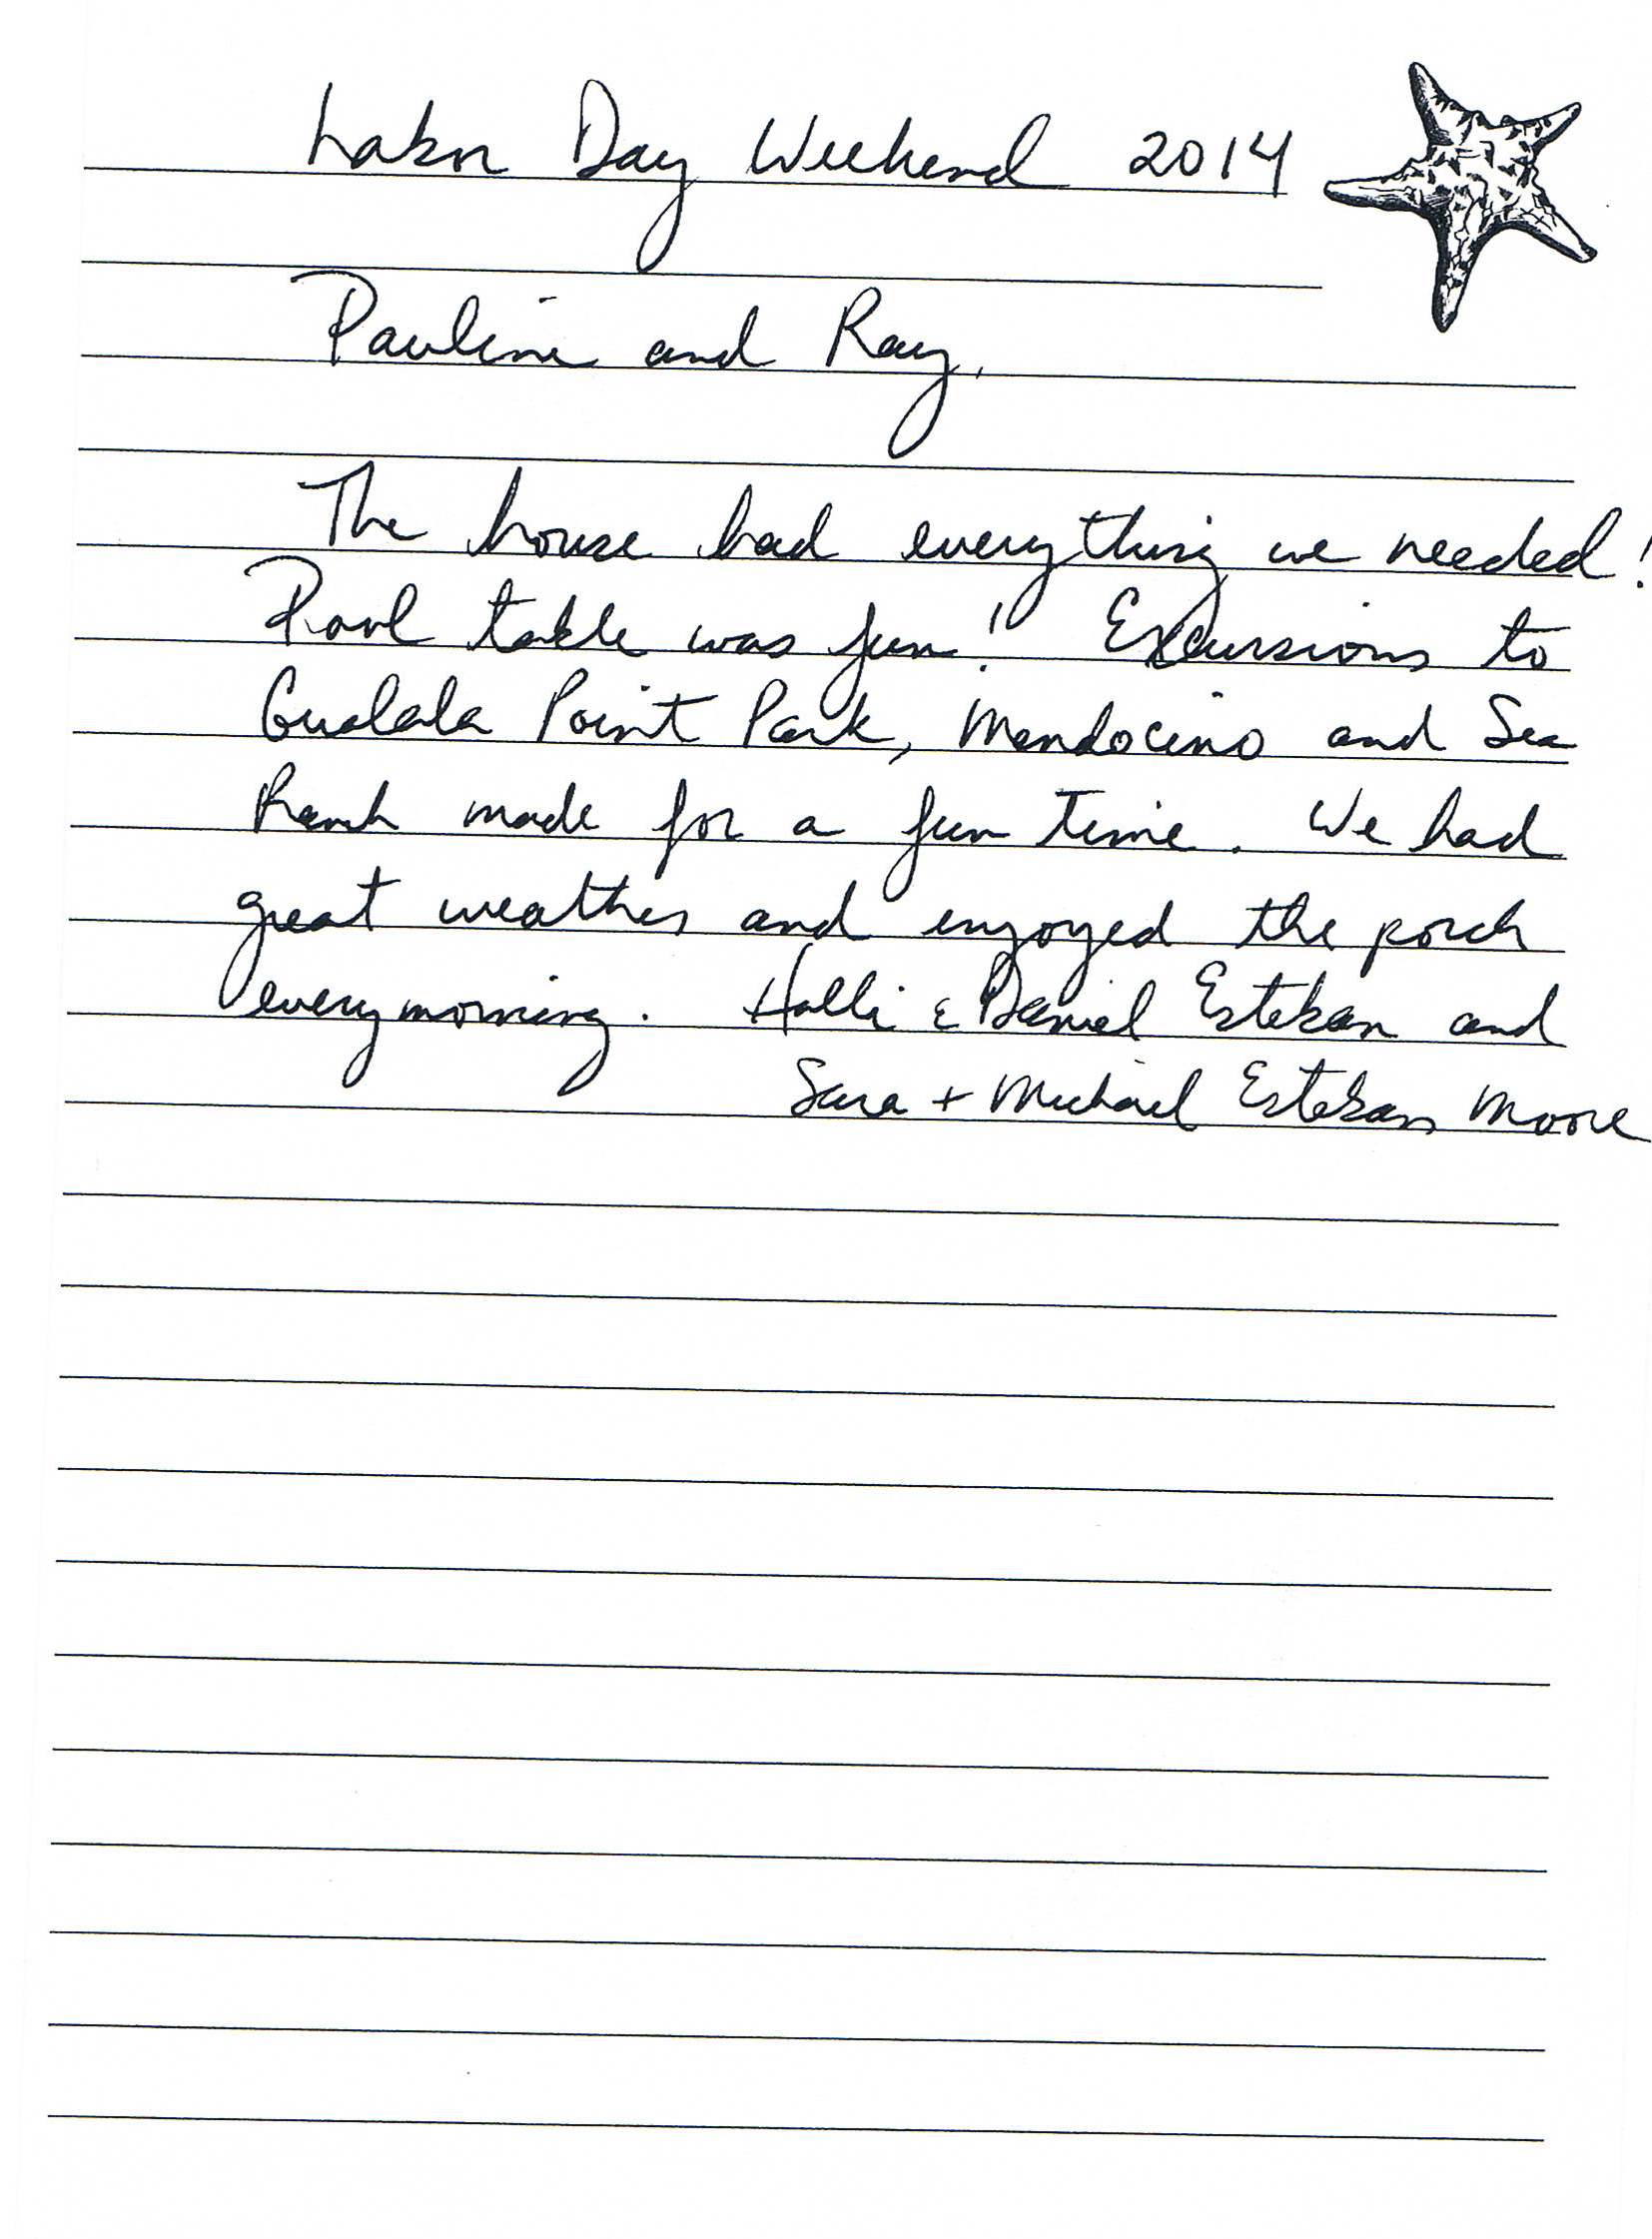 Labor Day Weekend 2014
Pauline and Ray,
The house had everything we needed!
Pool table was fun! Excursions to
Gualala Point Park, Mendocino and Sea
Ranch made for a fun time. We had
great weather and enjoyed the porch
every morning. Halli & Daniel Esteban and
Sara + Michael Esteban Moore